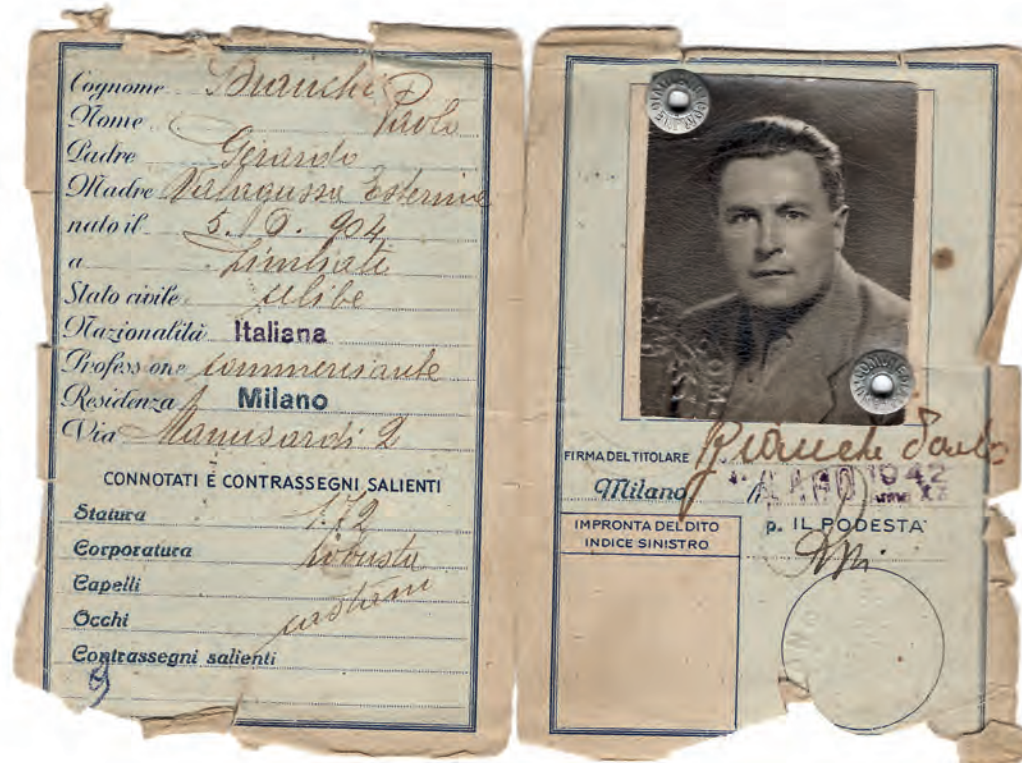 Cognome Bianchi
Nome Paolo
Padre Gerardo
Madre Valagussa Esterina
nato il 5. 6. 904
a Limbiate
Stato civile celibe
Nazionalità Italiana
Professione commerciante
Residenza Milano
Via Manusardi 2
CONNOTATI E CONTRASSEGNI SALIENTI
Statura 1.72
Corporatura robusta
Capelli
Occhi castani
Contrassegni salienti
FIRMA DEL TITOLARE Bianchi Paolo
Milano, li 1942
IMPRONTA DEL DITO
INDICE SINISTRO
p. IL PODESTA'